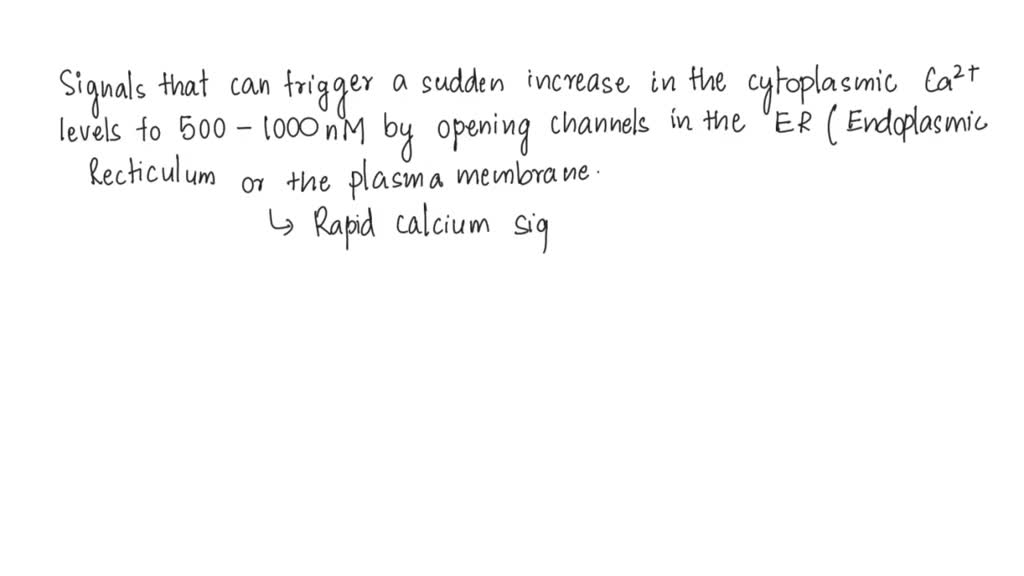 Signals that can trigger a sudden increase in the cytoplasmic Ca²⁺
levels to 500 - 1000 nM by opening channels in the ER ( Endoplasmic
Recticulum or the plasma membrane.
↳ Rapid calcium sig